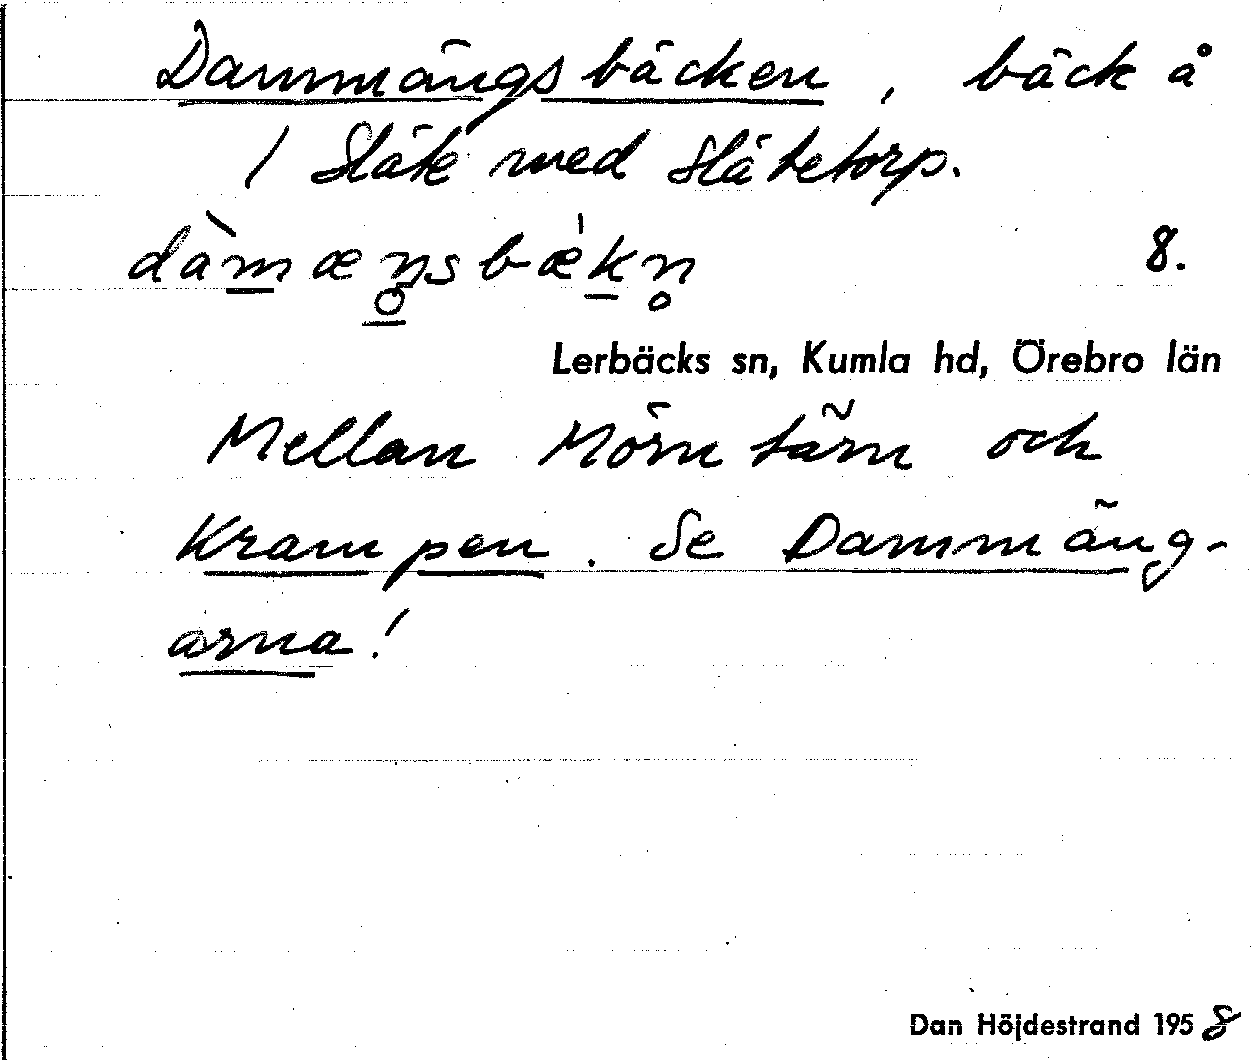 Dammängsbäcken, bäck å
1 Släte med Slätetorp.
dàmæŋsbækn̥ 8.
Lerbäcks sn, Kumla hd, Örebro län
Mellan Mörntärn och
Krampen. Se Dammäng-
arna!
Dan Höjdestrand 1958